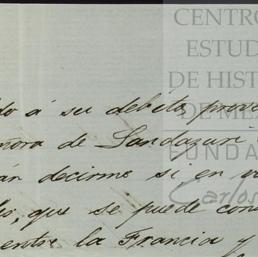 CENTRO
ESTUD
DE HIST
DE MÉX
FUNDA
Carlos
do á su debito prove
ñora de Landazuri
án decirme si en v
do, que se puede con
entre la Francia y